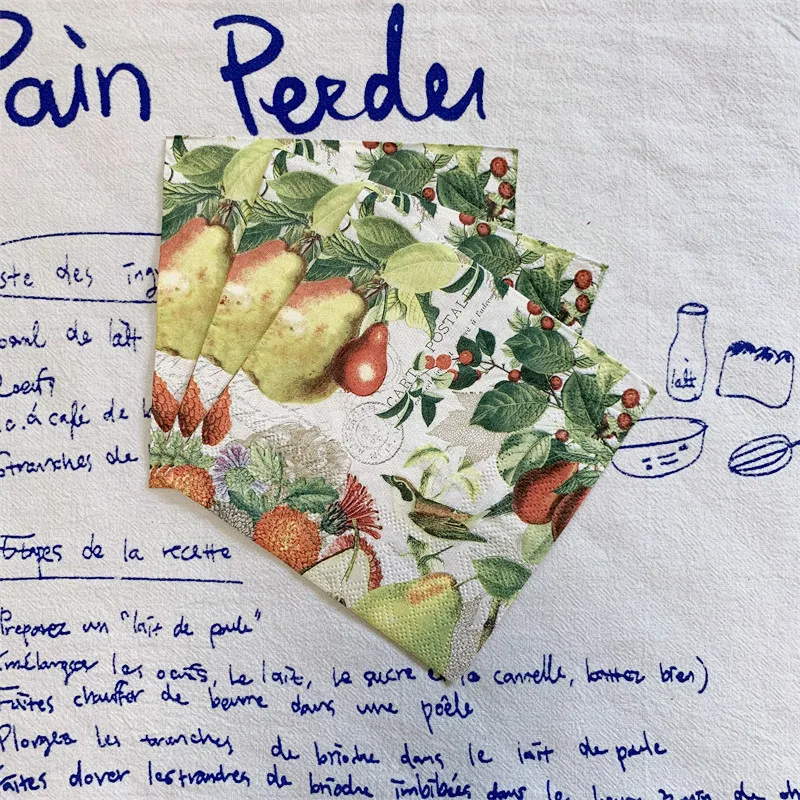 Pain Perdu
ste des ing
lait
de lait
oeufs
c. à café de
tranches de
CARTE POSTALE
Etapes de la recette
Preparez un "lait de poule"
(mélangez les oeufs, le lait, le sucre la cannelle, battez bien)
Faites chauffer de beurre dans une poêle
Plongez les tranches de brioche dans le lait de poule
Faites dorer les tranches de brioche imbibées dans le